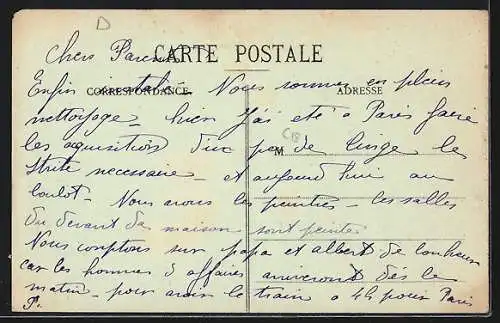 D
Chers Parents CARTE POSTALE
Enfin installés. Nous sommes en plein
CORRESPONDANCE ADRESSE
nettoyage - hier j'ai été a Paris faire
C18
les aquisitions d'un peu de linge le
M
strite necessaire - et aujourd'hui au
boulot - Nous avons les peintres - les salles
du devant de maison sont peintes
Nous comptons sur papa et albert de bonheur
car les hommes d'affaires arriveront dès le
matin - pour avoir le train a 4h pour Paris